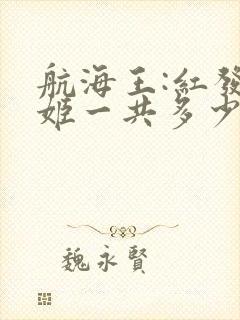 航海王:紅發
姬一共多少
魏永賢